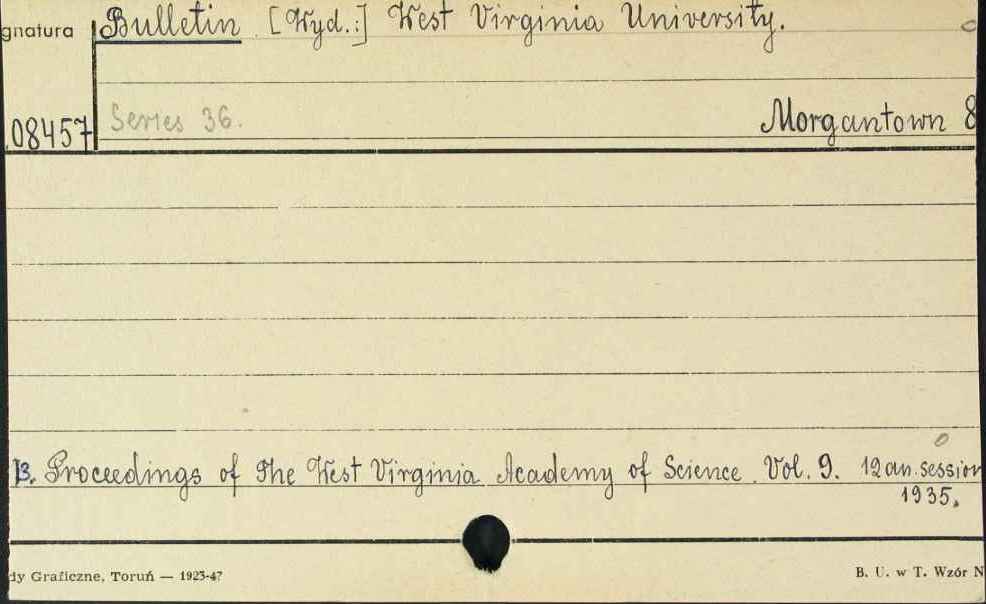 gnatura Bulletin [Wyd.:] West Virginia University.
08457 Series 36. Morgantown 8
13. Proceedings of The West Virginia Academy of Science. Vol. 9. 12 an. session
1935.
dy Graficzne, Toruń — 1923-47 B. U. w T. Wzór N